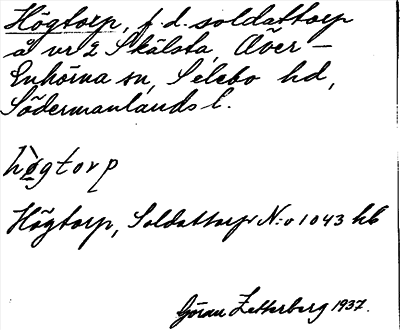 Högtorp, f.d. soldattorp
å nr 2 Skälsta, Över-
Enhörna sn, Selebo hd,
Södermanlands l.
hò̤gtorp
Högtorp, Soldattorp N:o 1043 hb
Göran Zetterberg 1937.